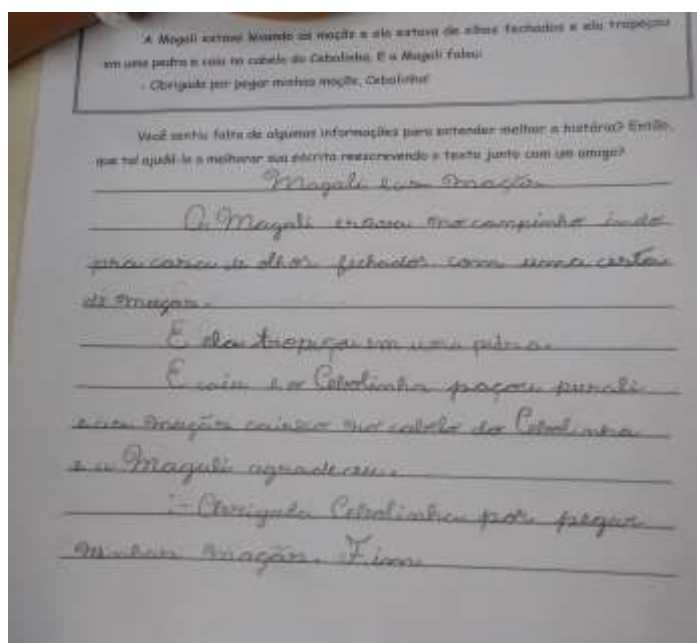 A Magali estava levando as maçãs e ela estava de olhos fechados e ela tropeçou
em uma pedra e caiu no cabelo do Cebolinha. E a Magali falou:
- Obrigada por pegar minhas maçãs, Cebolinha!
Você sentiu falta de algumas informações para entender melhor a história? Então,
que tal ajudá-lo a melhorar sua escrita reescrevendo o texto junto com um amigo?
Magali e as maçãs
A Magali estava no campinho indo
pra casa de olhos fechados com uma cesta
de maçãs.
E ela tropeçou em uma pedra.
E caiu e o Cebolinha paçou purali
e as maçãs no cabelo do Cebolinha
e a Magali agradeceu.
:- Obrigada Cebolinha por pegar
minhas maçãs. Fim